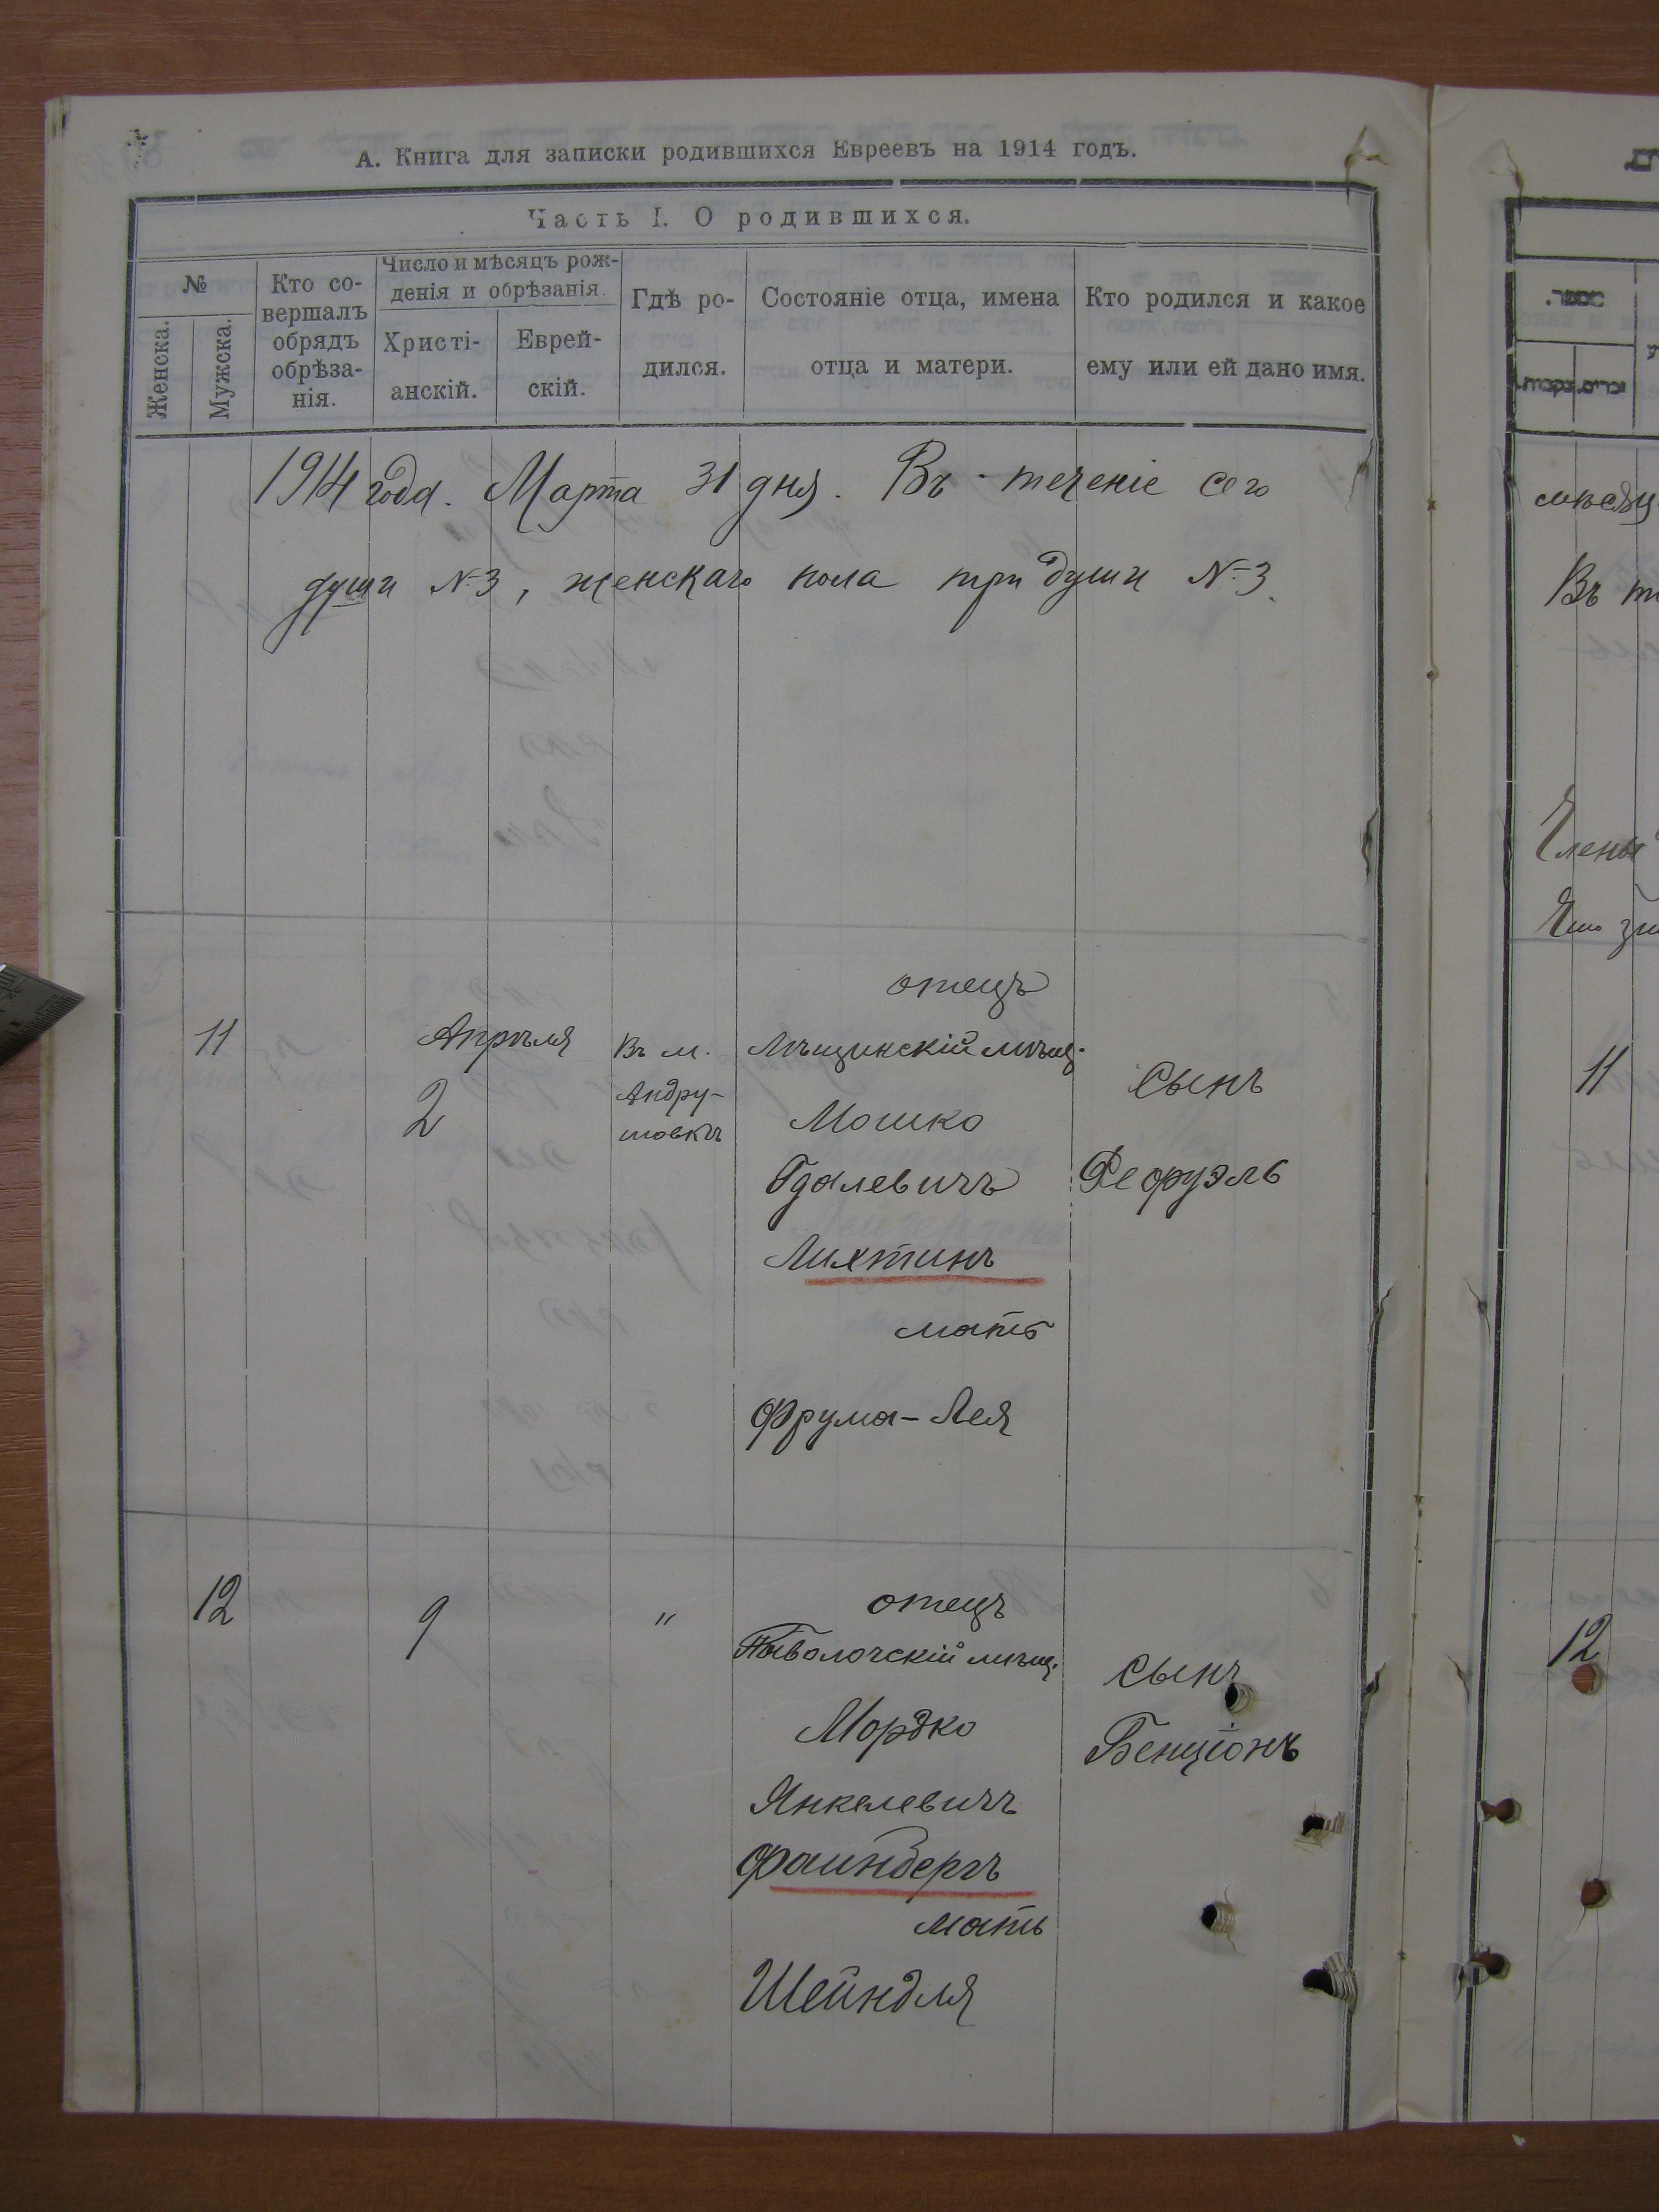 А. Книга для записки родившихся Евреевъ на 1914 годъ.
Часть I. О родившихся.
№
Женска.
Мужска.
Кто со-
вершалъ
обрядъ
обрѣза-
нія.
Число и мѣсяцъ рож-
денія и обрѣзанія.
Христі-
анскій.
Еврей-
скій.
Гдѣ ро-
дился.
Состояніе отца, имена
отца и матери.
Кто родился и какое
ему или ей дано имя.
1914 года. Марта 31 дня. Въ теченіе сего
души №3, женскаго пола три души №3.
11
Апрѣля
2
Въ м.
Андру-
шовкѣ
отецъ
мѣщ.
Мошко
Гдалевичъ
Лихтинъ
мать
Фрума-Лея
Сынъ
Рефуэль
12
9
"
отецъ
мѣщ.
Мордко
Янкелевичъ
Фаинбергъ
мать
Шейндля
Сынъ
Бенціонъ
мѣсяц
Въ
Члены
11
12